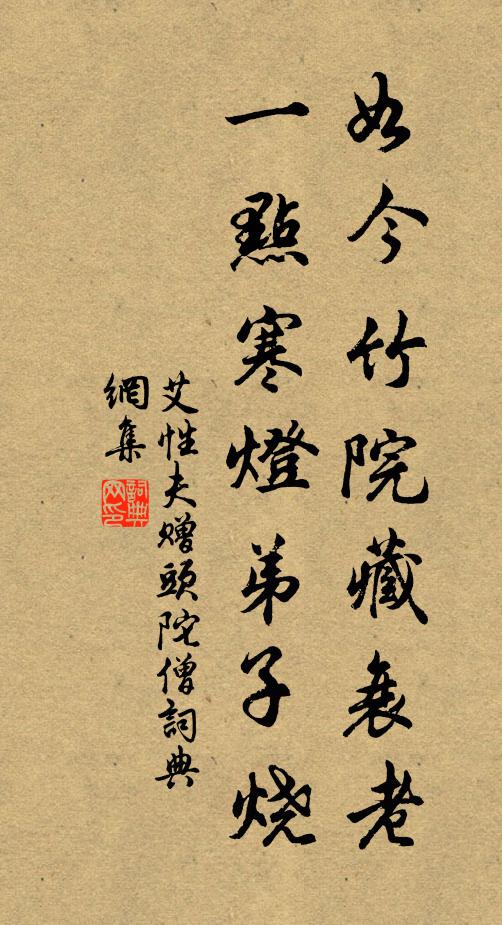 如今竹院藏衰老
一點寒燈弟子烧
艾性夫贈頭陀僧詞典
網集
詞典
网印